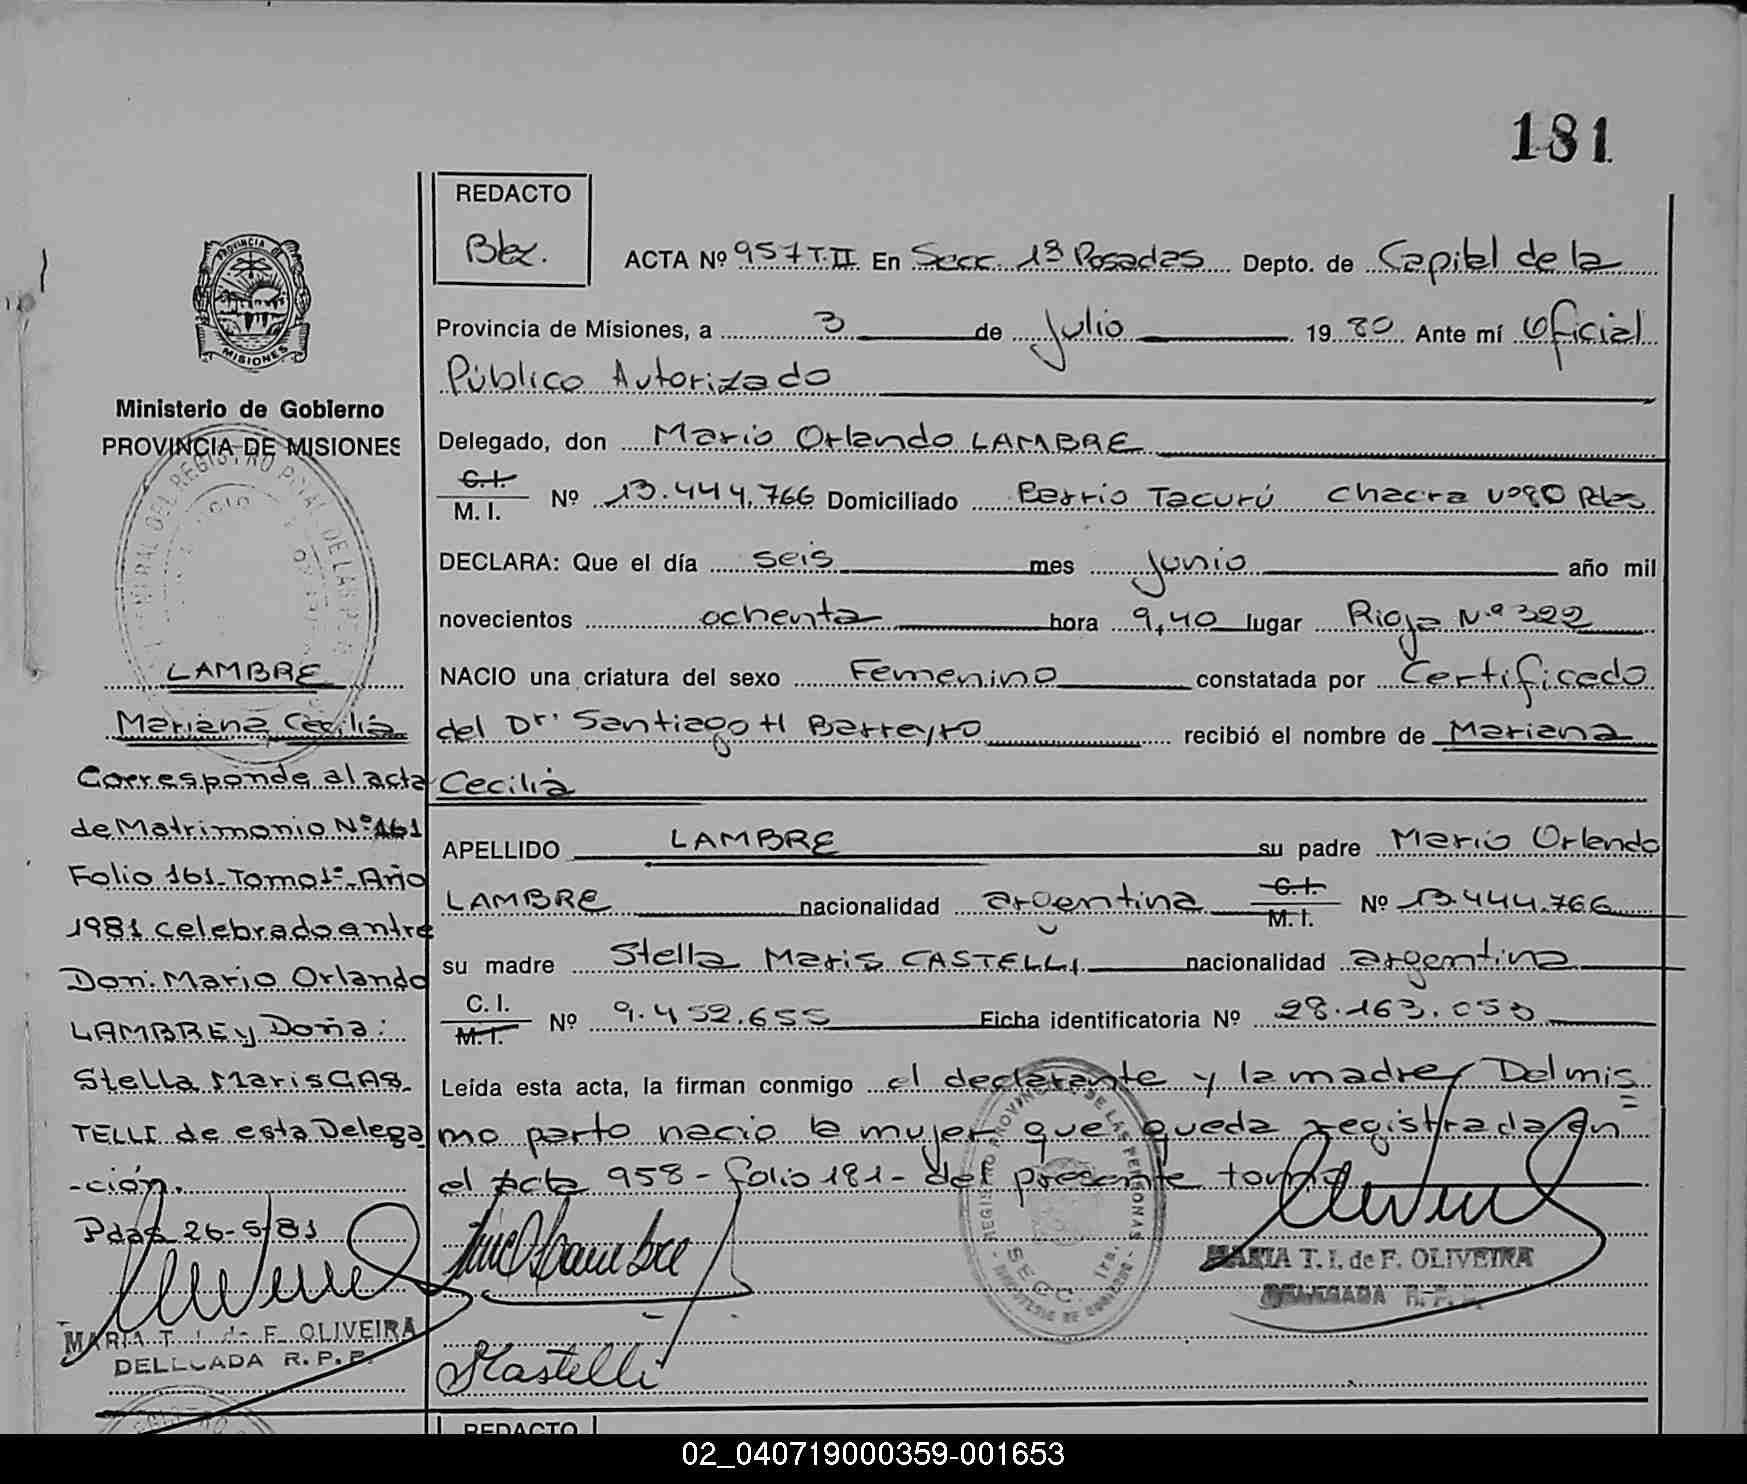 181
REDACTO
ACTA Nº 957 T. II En Secc. 1ª Posadas Depto. de Capital de la
Provincia de Misiones, a 3 de Julio 19 80 Ante mí Oficial
Público Autorizado
Delegado, don Mario Orlando LAMBRE
C.I.
M. I. Nº 13.444.766 Domiciliado Barrio Tacurú chacra Nº 80 Pdas
DECLARA: Que el día seis mes junio año mil
novecientos ochenta hora 9,40 lugar Rioja N.º 322
NACIO una criatura del sexo Femenino constatada por Certificado
del Dr. Santiago H Barreyro recibió el nombre de Mariana
Cecilia
APELLIDO LAMBRE su padre Mario Orlando
LAMBRE nacionalidad argentina C.I. M.I. Nº 13.444.766
su madre Stella Maris CASTELLI nacionalidad argentina
C. I.
M.I. Nº 9.452.655 Ficha identificatoria Nº 28.163.053
Leída esta acta, la firman conmigo el declarante y la madre/ Del mis=
mo parto nacio la mujer que queda registrada en
el acta 958 - folio 181 - del presente tomo
MARIA T. I. de F. OLIVEIRA
DELEGADA R. P. P.
PROVINCIA
MISIONES
Ministerio de Gobierno
PROVINCIA DE MISIONES
LAMBRE
Mariana Cecilia
Corresponde al acta
de Matrimonio Nº 161
Folio 161-Tomo 1º-Año
1981 celebrado entre
Don: Mario Orlando
LAMBRE y Doña:
Stella Maris CAS-
TELLI de esta Delega
-ción.
Pdas 26-5-81
MARIA T. I. de F. OLIVEIRA
DELEGADA R. P. P.
SCastelli
REDACTO
02_040719000359-001653